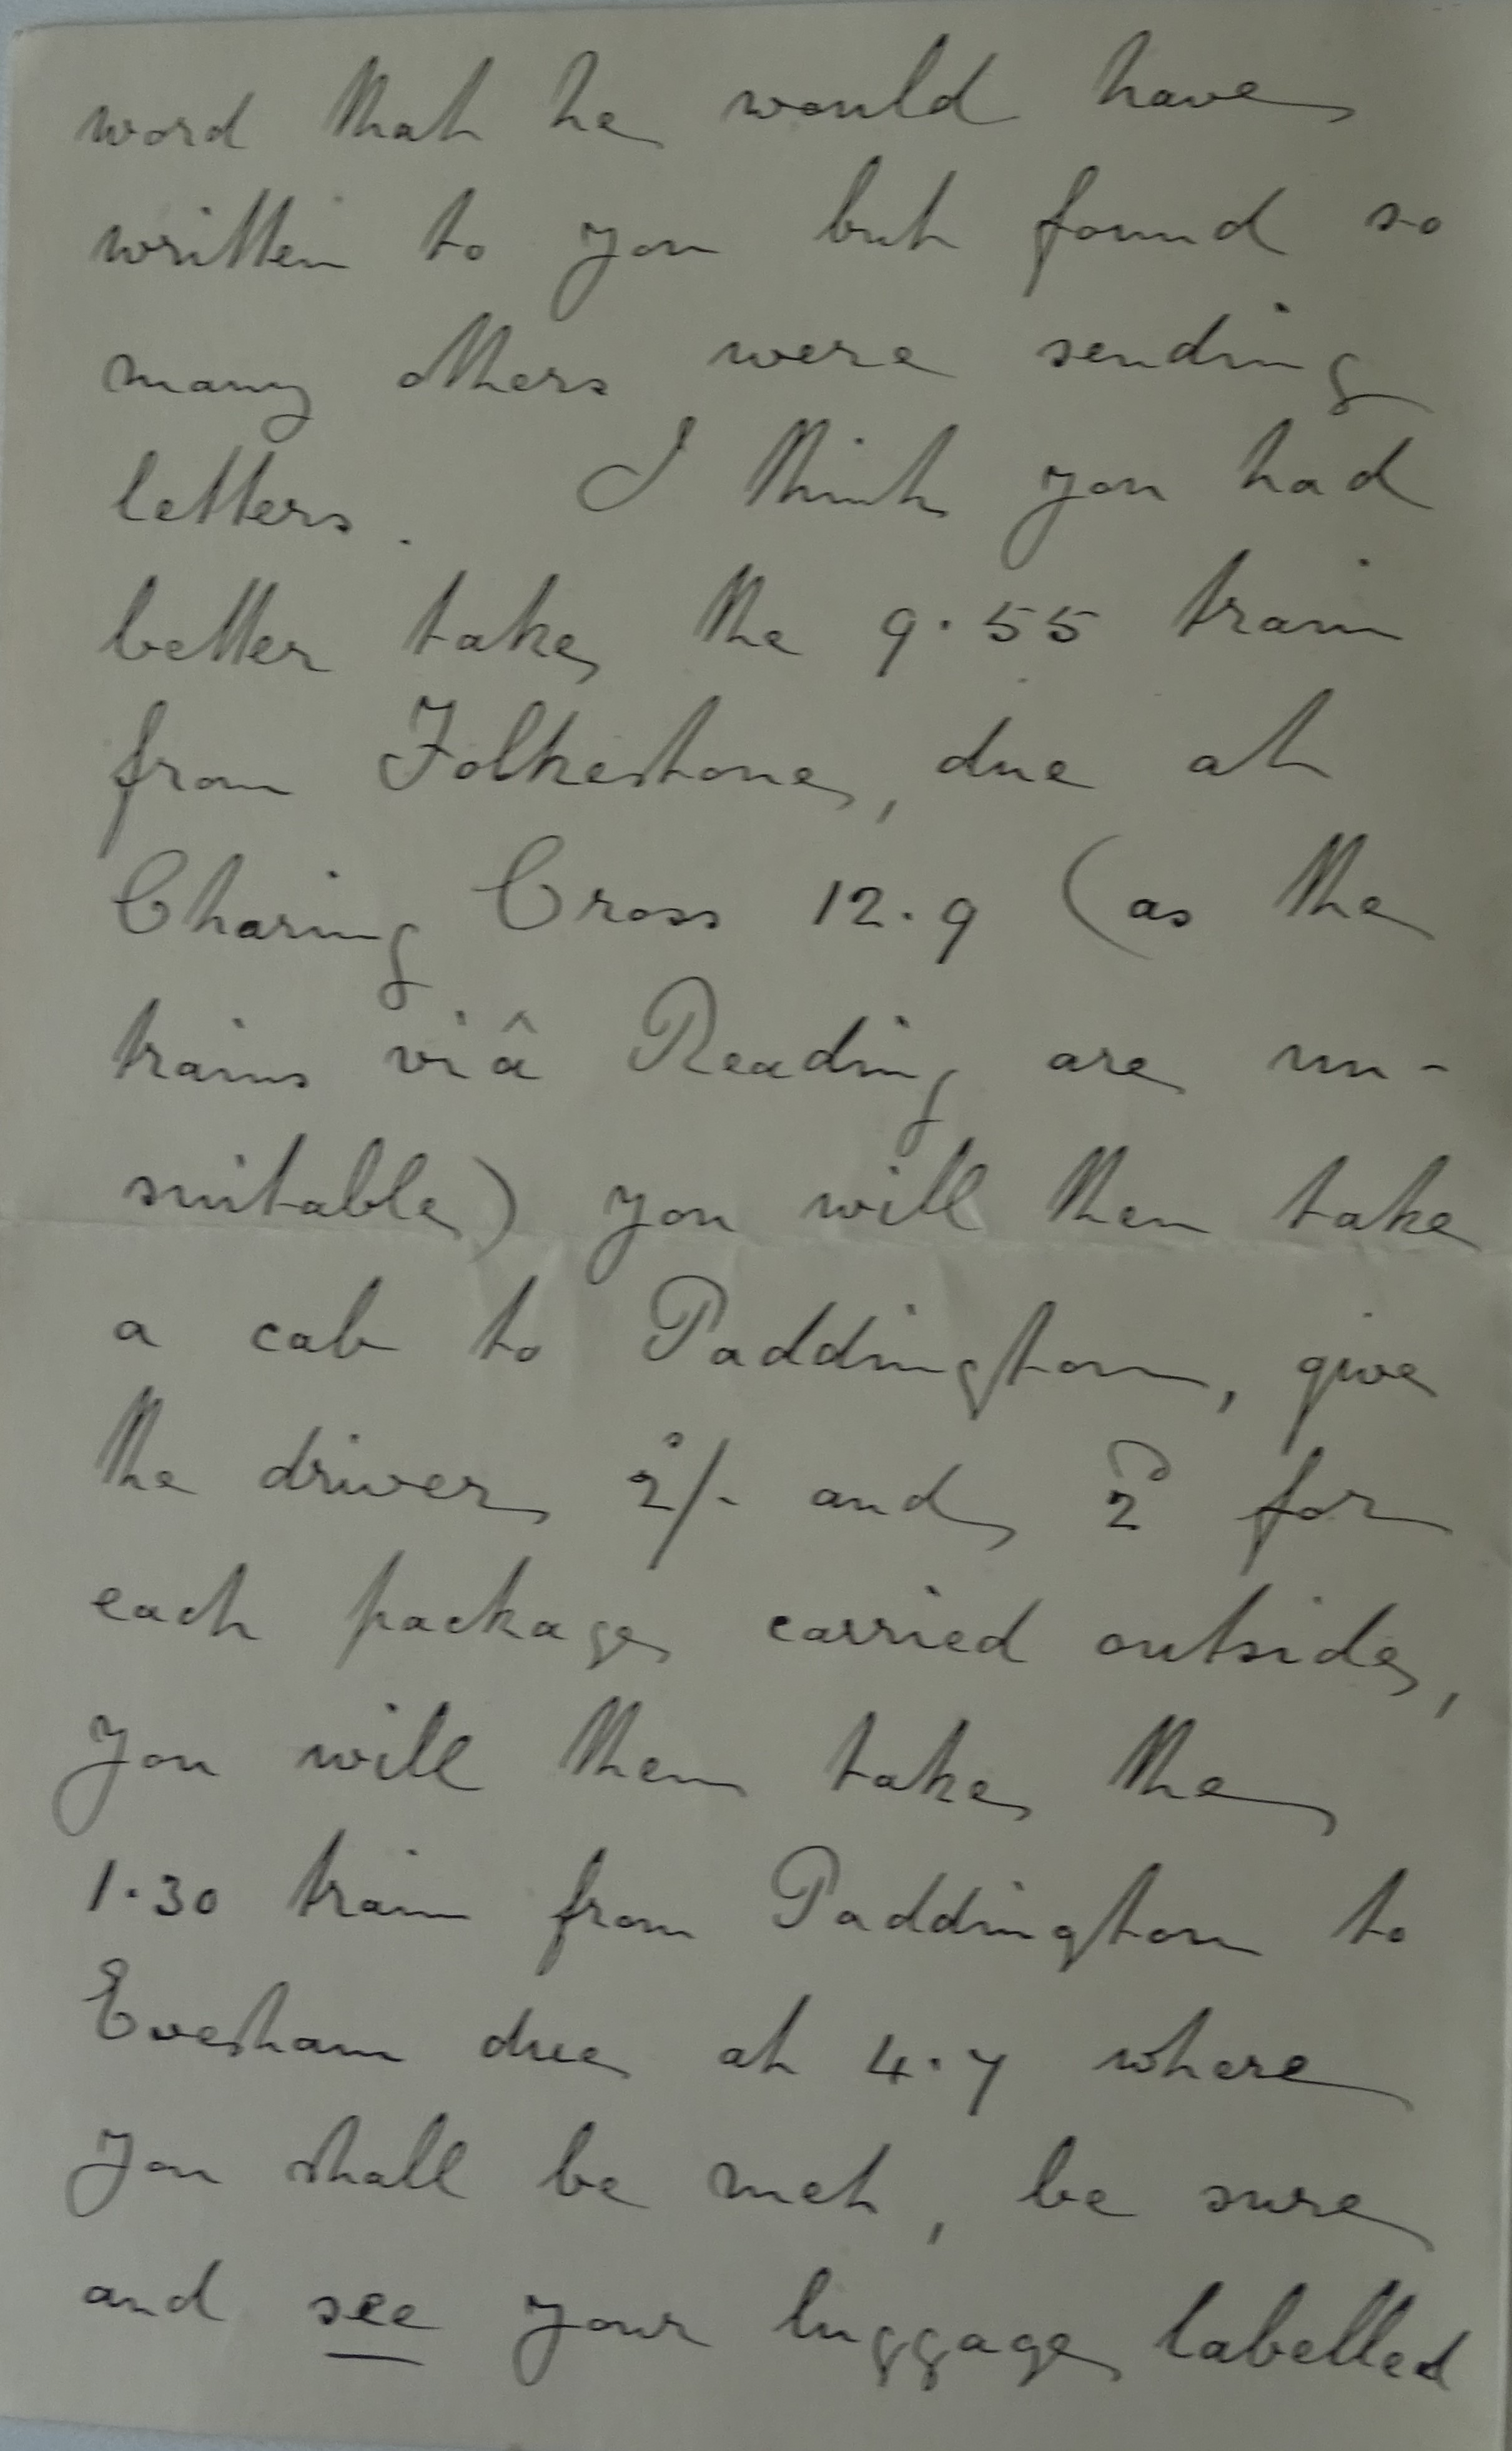 word that he would have
written to you but found so
many others were sending
letters. I think you had
better take the 9.55 train
from Folkestone, due at
Charing Cross 12.9 (as the
trains viâ Reading are un-
suitable) you will then take
a cab to Paddington, give
the driver 2s/- and 2d for
each package carried outside,
you will then take the
1.30 train from Paddington to
Evesham due at 4.7 where
you shall be met, be sure
and see your luggage labelled